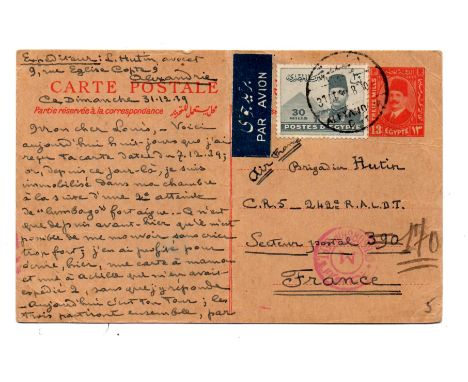 Expéditeur: L. Hutin, avocat
9, rue Eglise Copte 9
Alexandrie
CARTE POSTALE
Ce Dimanche 31.12.39
Partie réservée à la correspondance
Mon cher Louis, - Voici
aujourd'hui huit jours que j'ai
reçu ta carte datée du 7.12.39;
or, depuis ce jour-là, je suis
immobilisé dans ma chambre
à la suite d'une 2e atteinte
de "lumbago" fort aigue. Ce n'est
que depuis avant-hier qu'il n'est
possible de me mouvoir sans crier
fort; j'en ai profité pour
écrire, hier, une carte à maman
et une à
expédié 2, sans que j'y réponde
aujourd'hui c'est ton tour; les
trois partiront ensemble, par
PAR AVION
30
MILLS
POSTES D'EGYPTE
13
MILLS
EGYPTE
١٣
Air France
Brigadier Hutin
C.R.5 - 242e R.A.L.D.T.
Secteur postal 390
170
France
5